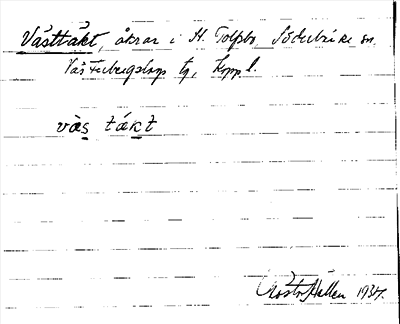 Västtäkt, åkrar i St. Tolfsbo, Söderbärke sn.
Västerbergslags tg, Kopp l.
vàs tákt
Gösta Hallen 1934.